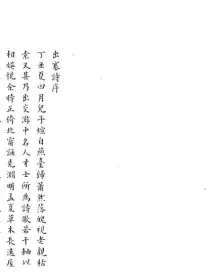 出塞詩序
丁丑夏四月兒子煊自燕臺歸蕭然落魄視老親枯
索又甚乃出交游中名人才士所爲詩歌若干軸以
相娱悅余時正倚北窗誦先淵明孟夏草木長遶屋